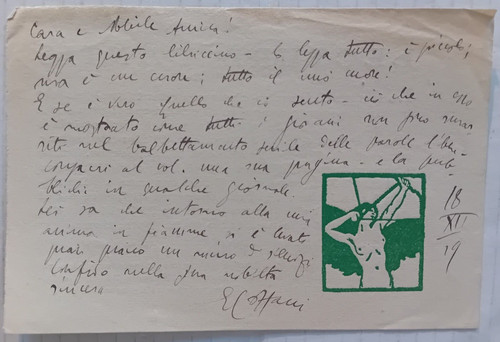 Cara e Nobile Amica!
Legga questo libriccino - Lo legga tutto: è piccolo;
ma è un cuore; tutto il mio cuore!
E se è vero quello che io sento - ciò che in esso
è mostrato come tutti i giovani non sono
nel balbettamento senile delle parole
al vol. una sua pagina - e la pub-
blichi in qualche giornale.
Lei sa che intorno alla mia
anima in fiamme si è
quasi un muro di silenzi
Confido nella sua nobiltà
sincera
E Cozzani
18
XII
19